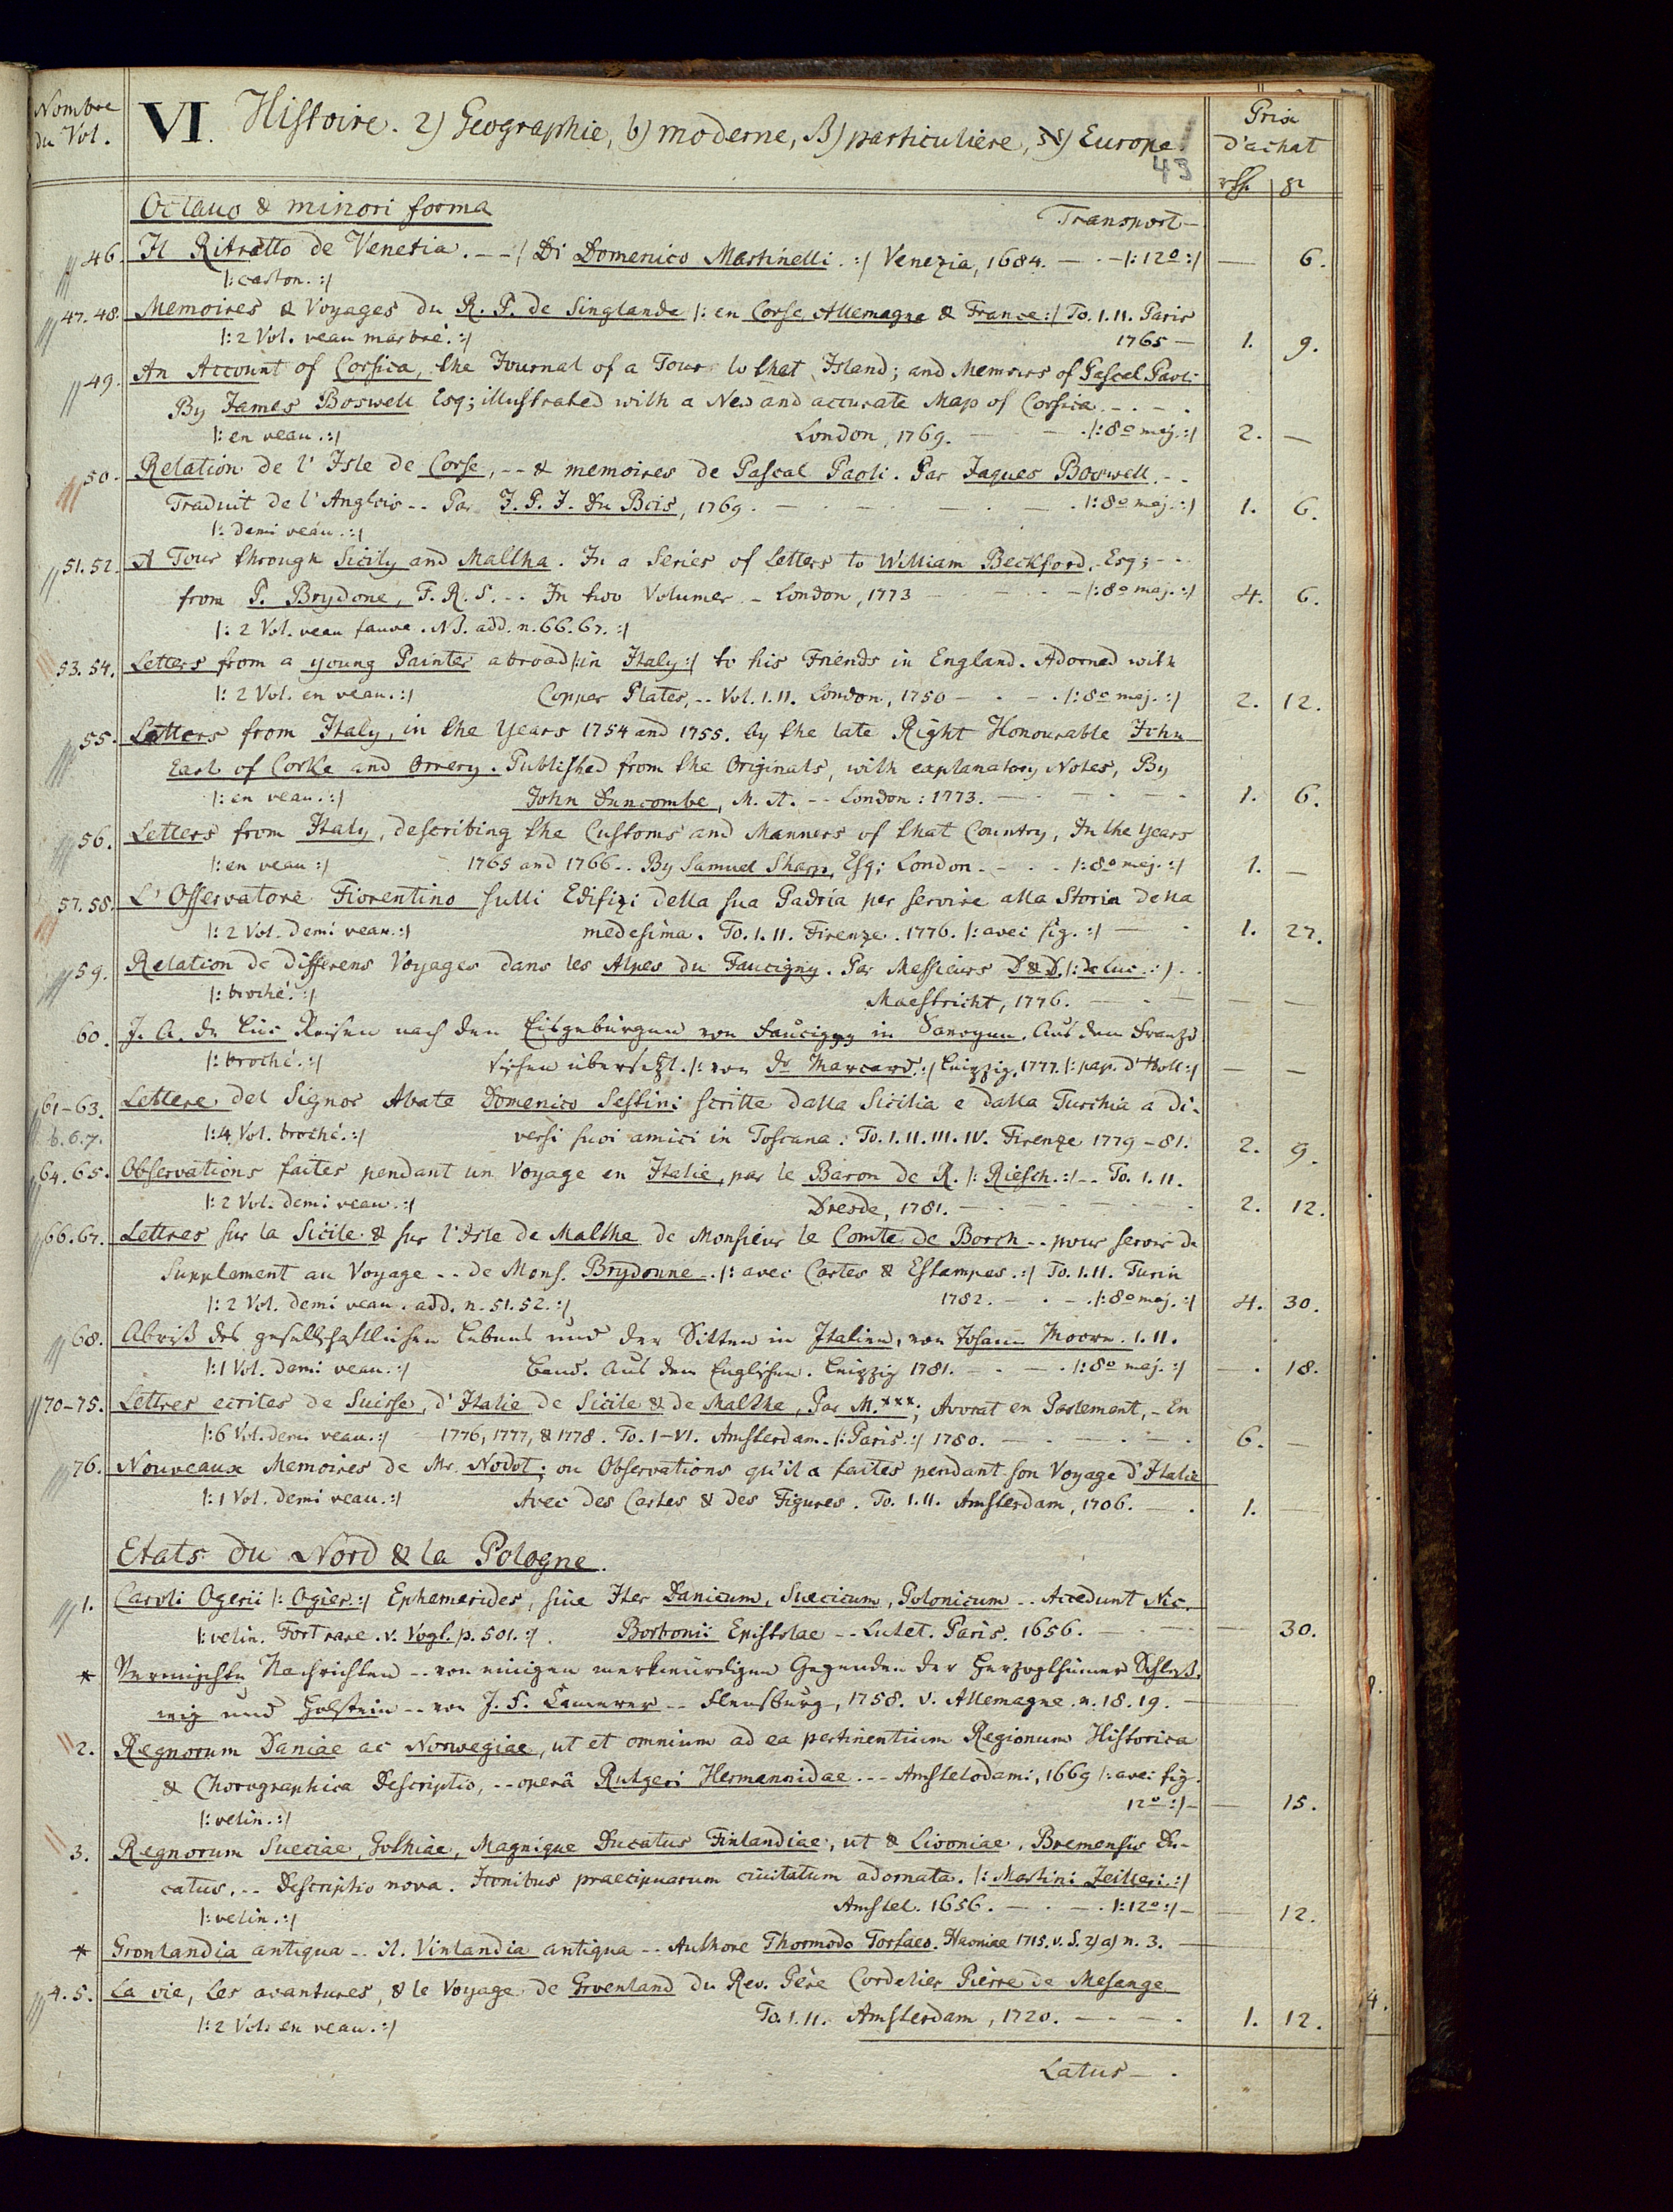 Nombre
du Vol.
VI. Histoire. 2) Geographie, b) moderne, B) particuliere, א) Europe.
43
Prix
d'achat
Octavo & minori forma
Transport —
46. Il Ritratto de Venetia. - - /: Di Domenico Martinelli. :/ Venezia, 1684. — - —/: 12º :/ — 6.
/: carton. :/
47. 48. Memoires & Voyages du R. P. de Singlande /: en Corse, Allemagne & France :/ To. I. II. Paris
/: 2 Vol. veau marbré. :/ 1765 — 1. 9.
49. An Account of Corsica, the Journal of a Tour to that Island; and Memoirs of Pascal Paoli
By James Boswell Esq; illustrated with a New and accurate Map of Corsica - - - -
/: en veau. :/ London, 1769. — - — . /: 8º maj. :/ 2. —
50. Relation de l'Isle de Corse, - - & memoires de Pascal Paoli. Par Jaques Boswell. - -
Traduit de l'Anglois - - Par J. P. I. Du Bois, 1769. - — - — - — . /: 8º maj. :/ 1. 6.
/: demi veau. :/
51. 52. A Tour through Sicily and Maltha. In a Series of Letters to William Beckford, Esq; - -
from P. Brydone, F. R. S. - - In two Volumes - London, 1773 — - - - —/: 8º maj. :/ 4. 6.
/: 2 Vol. veau fauve. NB. add. n. 66. 67. :/
53. 54. Letters from a young Painter abroad /: in Italy :/ to his Friends in England. Adorned with
/: 2 Vol. en veau. :/ Copper Plates, - - Vol. I. II. London, 1750 — - - . /: 8º maj. :/ 2. 12.
55. Letters from Italy, in the Years 1754 and 1755. by the late Right Honourable John
Earl of Corke and Orrery. Published from the Originals, with explanatory Notes, By
/: en veau. :/ John Duncombe, M. A. - - London: 1773. — — - — - 1. 6.
56. Letters from Italy, describing the Customs and Manners of that Country, In the Years
/: en veau :/ 1765 and 1766. - By Samuel Sharp, Esq; London. - - - /: 8º maj. :/ 1. —
57. 58. L'Osservatore Fiorentino sulli Edifizi della sua Padria per servire alla Storia della
/: 2 Vol. demi veau. :/ medesima. To. I. II. Firenze. 1776. /: avec fig. :/ — - 1. 27.
59. Relation de differens Voyages dans les Alpes du Faucigny. Par Messieurs D & D. /: de Luc. :/ - -
/: broché. :/ Maestricht, 1776. — - — — —
60. J. A. de Luc Reisen nach den Eisgebürgen von Faucigny in Savoyen. Aus dem Franzö
/: broché. :/ sischen übersetzt. /: von Dr Marcard. :/ Leipzig, 1777. /: pap. d'Holl :/ — —
61-63. Lettere del Signor Abate Domenico Sestini scritte dalla Sicilia e dalla Turchia a di-
b. 6. 7. /: 4 Vol. broché. :/ versi suoi amici in Toscana. To. I. II. III. IV. Firenze 1779-81. 2. 9.
64. 65. Observations faites pendant un Voyage en Italie, par le Baron de R. /: Riesch. :/ - - To. I. II.
/: 2 Vol. demi veau. :/ Dresde, 1781. — - — - — - 2. 12.
66. 67. Lettres sur la Sicile & sur l'Isle de Malthe de Monsieur le Comte de Borch - - pour servir de
Supplement au Voyage - - de Mons. Brydonne - . /: avec Cartes & Estampes. :/ To. I. II. Turin
/: 2 Vol. demi veau. add. n. 51. 52. :/ 1782. — - - . /: 8º maj. :/ 4. 30.
68. Abriß des gesellschaftlichen Lebens und der Sitten in Italien, von Johann Moore. I. II.
/: 1 Vol. demi veau. :/ Band. Aus dem Englischen. Leipzig 1781. — - — . /: 8º maj. :/ — 18.
70-75. Lettres ecrites de Suisse, d'Italie de Sicile & de Malthe, Par M.***, Avocat en Parlement, - En
/: 6 Vol. demi veau. :/ 1776, 1777, & 1778. To. I-VI. Amsterdam. /: Paris. :/ 1780. — - — - — - 6. —
76. Nouveaux Memoires de Mr. Nodot; ou Observations qu'il a faites pendant son Voyage d'Italie
/: 1 Vol. demi veau. :/ Avec des Cartes & des Figures. To. I. II. Amsterdam, 1706. — . 1. —
Etats du Nord & la Pologne.
1. Caroli Ogerii /: Ogier. :/ Ephemerides, sive Iter Danicum, Suecicum, Polonicum - - Accedunt Nic.
/: velin. Fort rare. v. Vogl. p. 501. :/. Borbonii Epistolae - - Lutet. Paris. 1656. — - — — 30.
* Vermischte Nachrichten - - von einigen merkwürdigen Gegenden der Herzogthümer Schleß-
wig und Holstein - - von J. F. Camerer - - Flensburg, 1758. v. Allemagne. n. 18. 19. —
2. Regnorum Daniae ac Norwegiae, ut et omnium ad ea pertinentium Regionum Historica
& Chorographica Descriptio, - - operâ Rutgeri Hermannidae - - - Amstelodami, 1669 /: avec fig.
/: velin. :/ 12º :/ — — 15.
3. Regnorum Sueciae, Gothiae, Magnique Ducatus Finlandiae, ut & Livoniae, Bremensis Du-
catus, - - Descriptio nova. Iconibus praecipuarum civitatum adornata. /: Martini Zeilleri :/
/: velin. :/ Amstel. 1656. — - — . /: 12º :/ — — 12.
* Gronlandia antiqua - - it. Vinlandia antiqua - - Authore Thormodo Torfaeo. Havniae 1715. v. S. 2) a) n. 3. —
4. 5. La vie, les avantures, & le Voyage de Groenland du Rev. Père Cordelier Pierre de Mesange
/: 2 Vol. en veau. :/ To. I. II. Amsterdam, 1720. — - — - 1. 12.
Latus — .